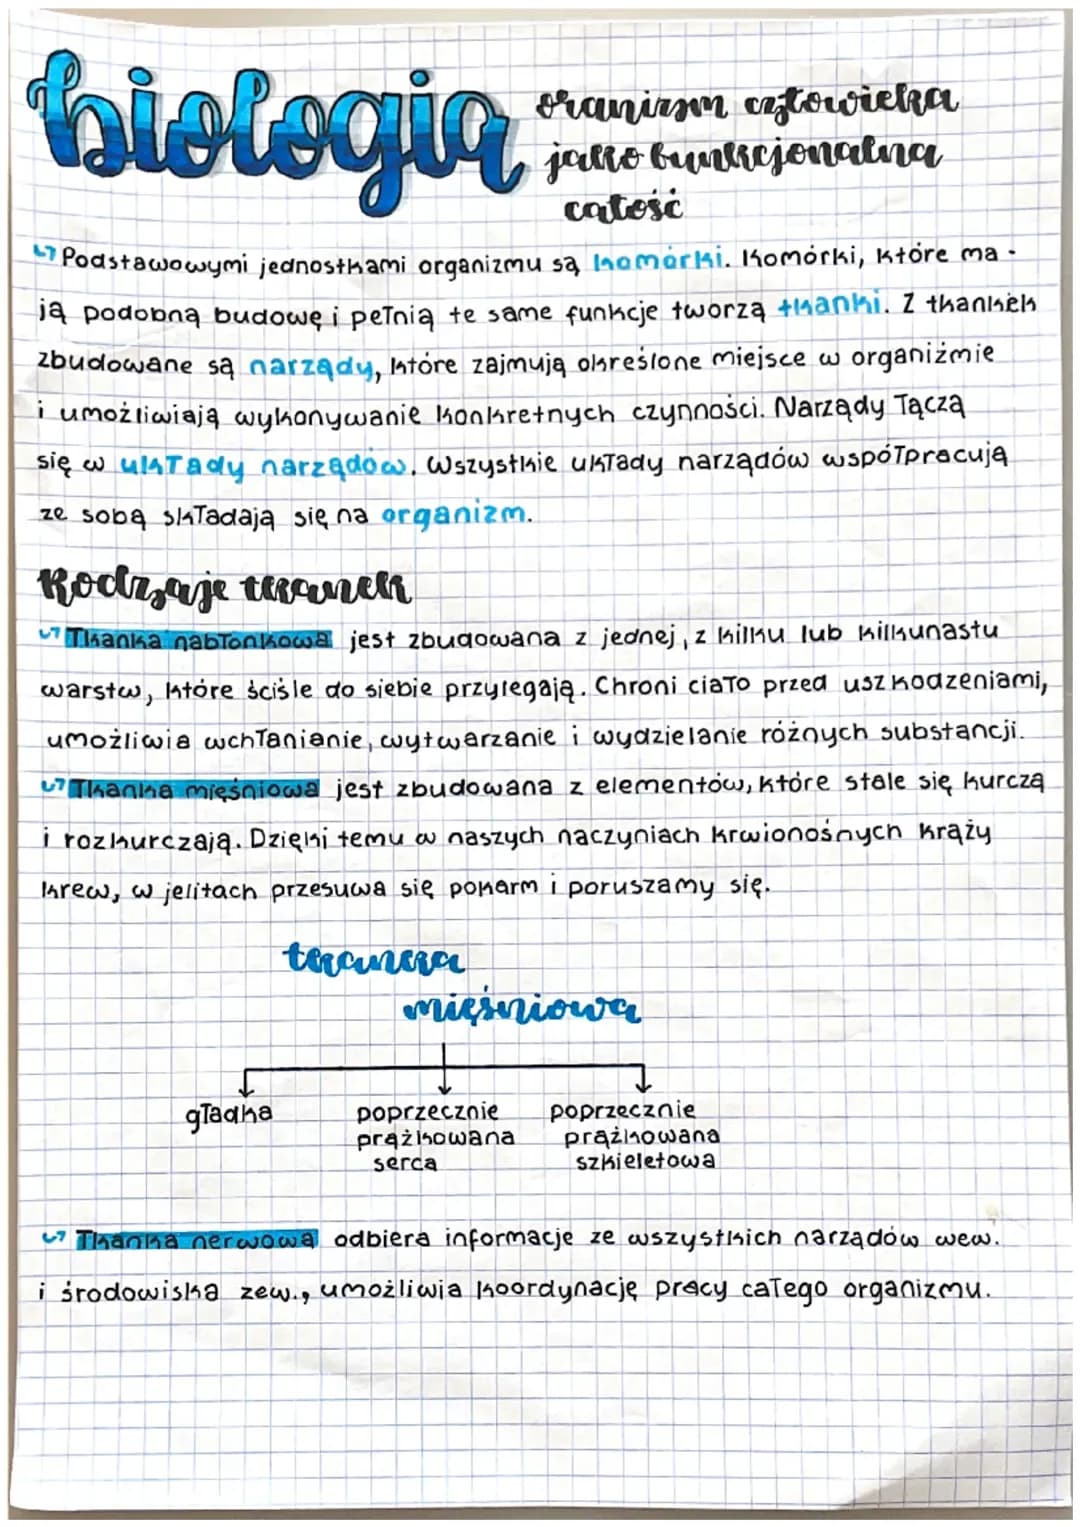 biologia
oranizm człowieka
jako funkcjonalna
całość
↳ Podstawowymi jednostkami organizmu są komórki. Komórki, które ma-
ją podobną budowę i pełnią te same funkcje tworzą tkanki. Z tkanek
zbudowane są narządy, które zajmują określone miejsce w organiźmie
i umożliwiają wykonywanie konkretnych czynności. Narządy łączą
się w układy narządów. Wszystkie układy narządów współpracują
ze sobą składają się na organizm.
Rodzaje tkanek
↳ Tkanka nabłonkowa jest zbudowana z jednej, z kilku lub kilkunastu
warstw, które ściśle do siebie przylegają. Chroni ciało przed uszkodzeniami,
umożliwia wchłanianie, wytwarzanie i wydzielanie różnych substancji.
↳ Tkanka mięśniowa jest zbudowana z elementów, które stale się kurczą
i rozkurczają. Dzięki temu w naszych naczyniach krwionośnych krąży
krew, w jelitach przesuwa się pokarm i poruszamy się.
tkanka
mięśniowa
gładka poprzecznie poprzecznie
prążkowana prążkowana
serca szkieletowa
↳ Tkanka nerwowa odbiera informacje ze wszystkich narządów wew.
i środowiska zew., umożliwia koordynację pracy całego organizmu.